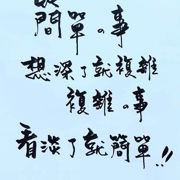 簡單の事
想深了就複雜
複雜の事
看淡了就簡單!!